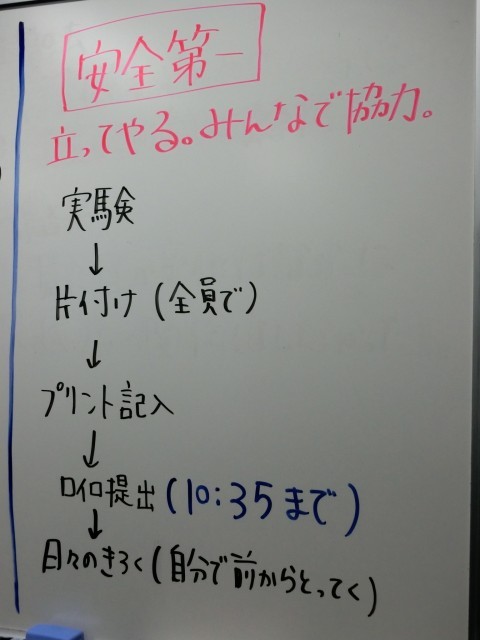 安全第一
立ってやる。みんなで協力。
実験
↓
片付け(全員で)
↓
プリント記入
↓
ロイロ提出(10:35まで)
↓
日々のきろく(自分で前からとってく)